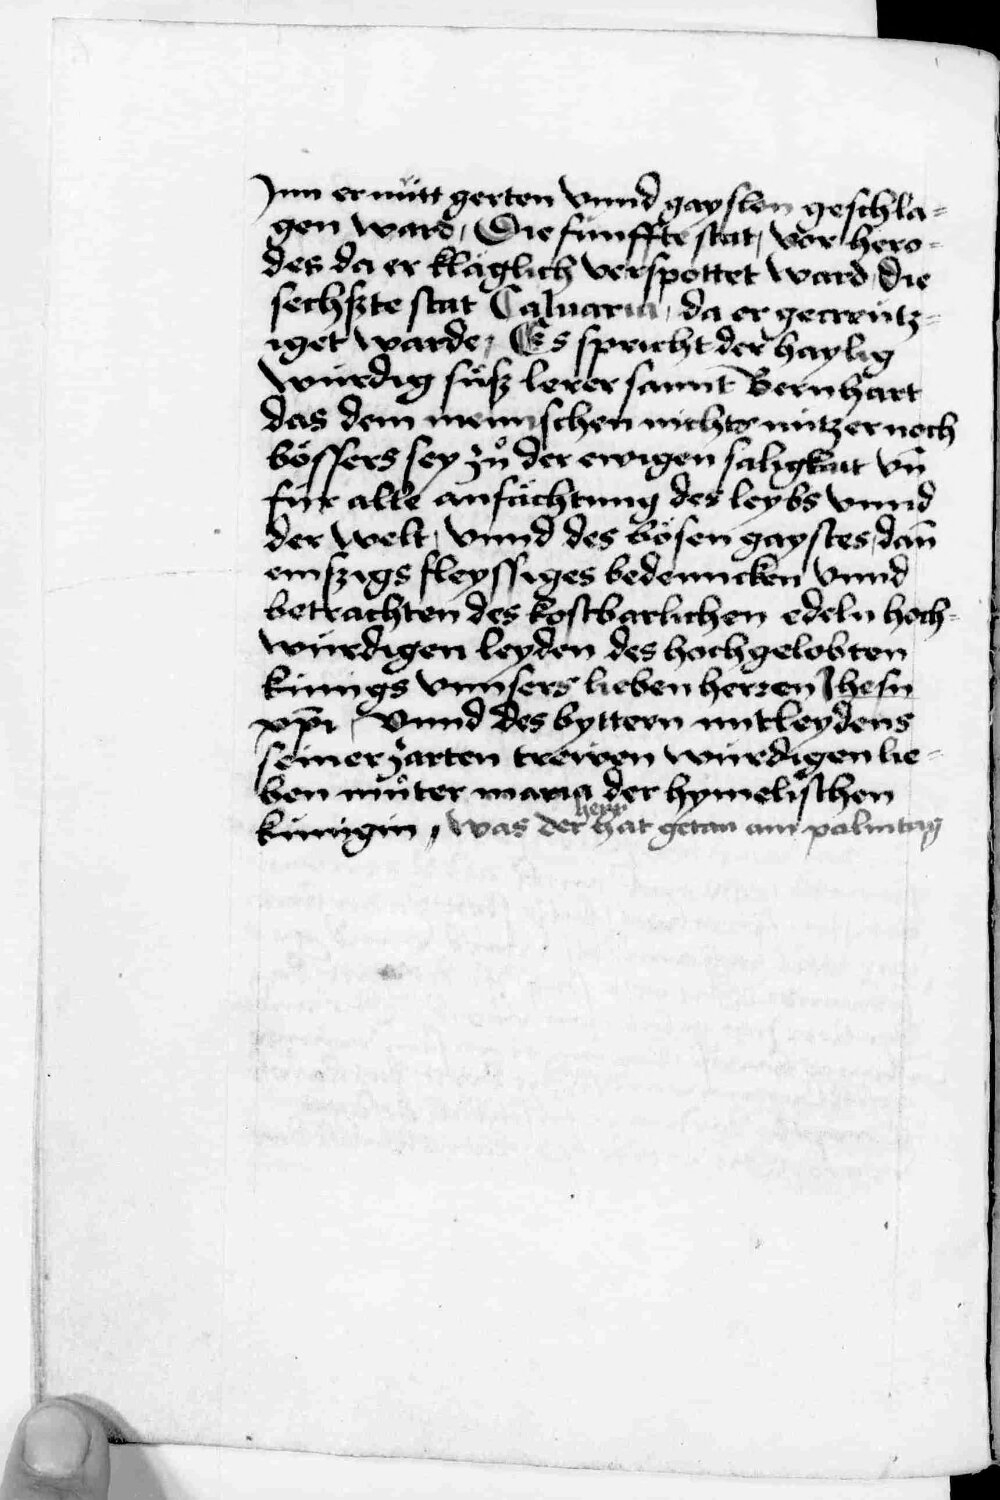 Jnn er mitt gerten vnnd gayslen geschla=
gen ward, Die fünffte stat, vor hero=
des da er kläglich verspottet ward, die
sechszte stat Caluaria, da er gecreütz=
iget warde, Es spricht der haylig
würdig süsz lerer sannt Bernhart
das dem mennschen nichts nützer noch
bössers sey zů der ewigen säligkait vn̄
für alle anfächtung des leybs vnnd
der welt, vnnd des bösen gaystes, dan̄
emszigs fleyssiges bedenncken vnnd
betrachten des kostbarlichen edeln hoch=
würdigen leyden des hochgelobten
künigs vnnsers lieben herren Jhesu
xp̄i, Vnnd des byttern mitleydens
seiner zarten trewen würdigen lie=
ben můter maria der hymelischen
künigin, was der herr hat getan am palmtag